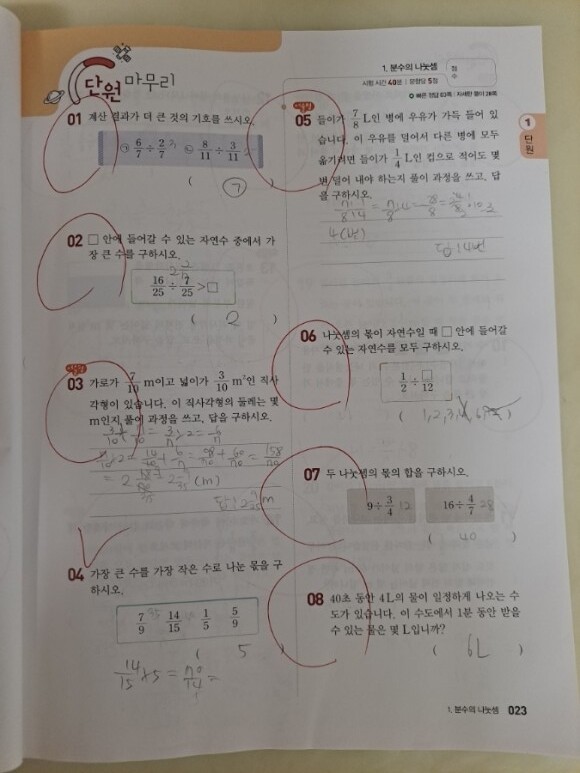 단원 마무리
1. 분수의 나눗셈
점수
시험 시간 40분 | 문항당 5점
빠른 정답 03쪽 | 자세한 풀이 26쪽
1 단원
01 계산 결과가 더 큰 것의 기호를 쓰시오.
㉠ 6/7 ÷ 2/7 3 ㉡ 8/11 ÷ 3/11
( ㉠ )
02 □ 안에 들어갈 수 있는 자연수 중에서 가
장 큰 수를 구하시오.
16/25 ÷ 7/25 > □
( 2 )
03 가로가 7/10 m이고 넓이가 3/10 m²인 직사
각형이 있습니다. 이 직사각형의 둘레는 몇
m인지 풀이 과정을 쓰고, 답을 구하시오.
04 가장 큰 수를 가장 작은 수로 나눈 몫을 구
하시오.
7/9 14/15 1/5 5/9
( 5 )
14/15 × 5 =
05 들이가 7/8 L인 병에 우유가 가득 들어 있
습니다. 이 우유를 덜어서 다른 병에 모두
옮기려면 들이가 1/4 L인 컵으로 적어도 몇
번 덜어 내야 하는지 풀이 과정을 쓰고, 답
을 구하시오.
4(번)
답 4번
06 나눗셈의 몫이 자연수일 때 □ 안에 들어갈
수 있는 자연수를 모두 구하시오.
1/2 ÷ □/12
( 1, 2, 3, 6 )
07 두 나눗셈의 몫의 합을 구하시오.
9 ÷ 3/4 12 16 ÷ 4/7 28
( 40 )
08 40초 동안 4 L의 물이 일정하게 나오는 수
도가 있습니다. 이 수도에서 1분 동안 받을
수 있는 물은 몇 L입니까?
( 6L )
1. 분수의 나눗셈 023